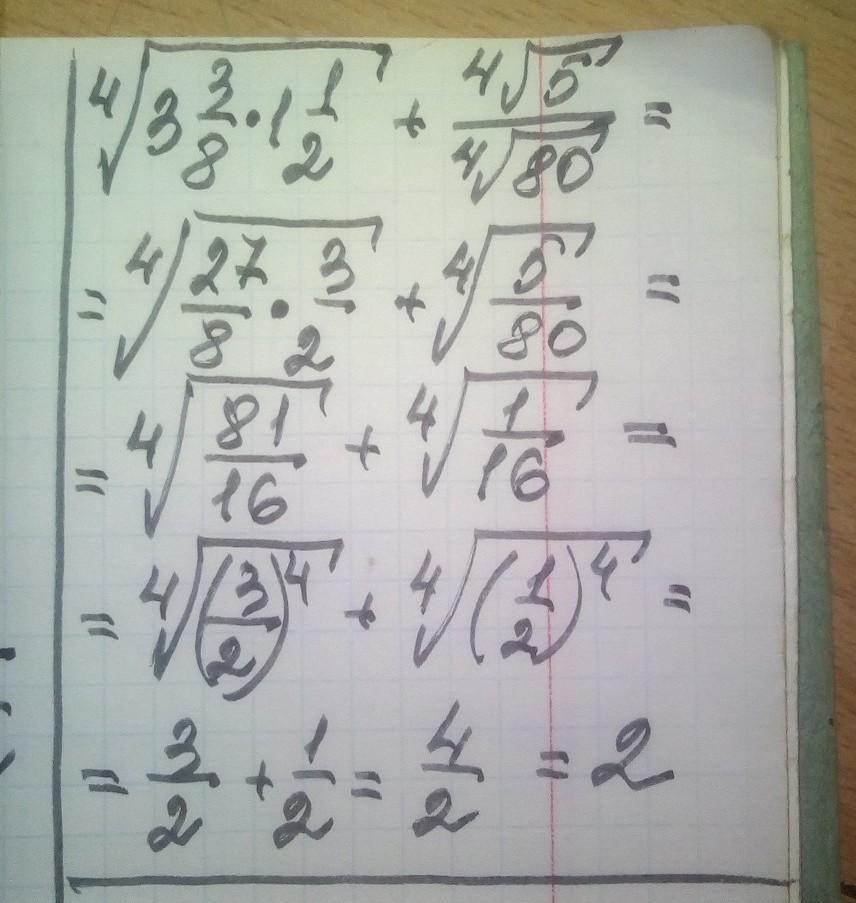 ⁴√(3 3/8 · 1 1/2) + ⁴√5 / ⁴√80 =
= ⁴√(27/8 · 3/2) + ⁴√(5/80) =
= ⁴√(81/16) + ⁴√(1/16) =
= ⁴√((3/2)⁴) + ⁴√((1/2)⁴) =
= 3/2 + 1/2 = 4/2 = 2